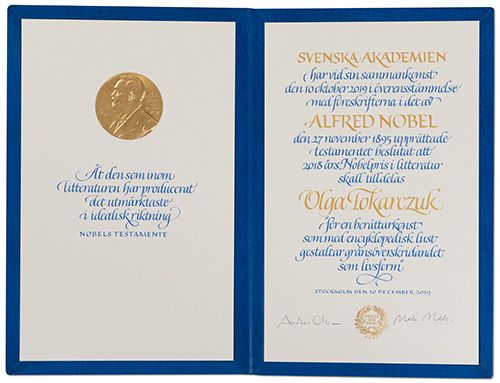 Åt den som inom
litteraturen har producerat
det utmärktaste
i idealisk riktning
NOBELS TESTAMENTE
SVENSKA AKADEMIEN
har vid sin sammankomst
den 10 oktober 2019 i överensstämmelse
med föreskrifterna i det av
ALFRED NOBEL
den 27 november 1895 upprättade
testamentet beslutat att
2018 års Nobelpris i litteratur
skall tilldelas
Olga Tokarczuk
”för en berättarkonst
som med encyklopedisk lust
gestaltar gränsöverskridandet
som livsform”
STOCKHOLM DEN 10 DECEMBER, 2019